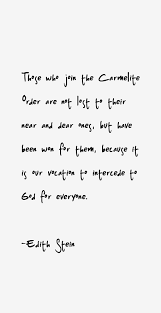 Those who join the Carmelite
Order are not lost to their
near and dear ones, but have
been won for them, because it
is our vocation to intercede to
God for everyone.
-Edith Stein